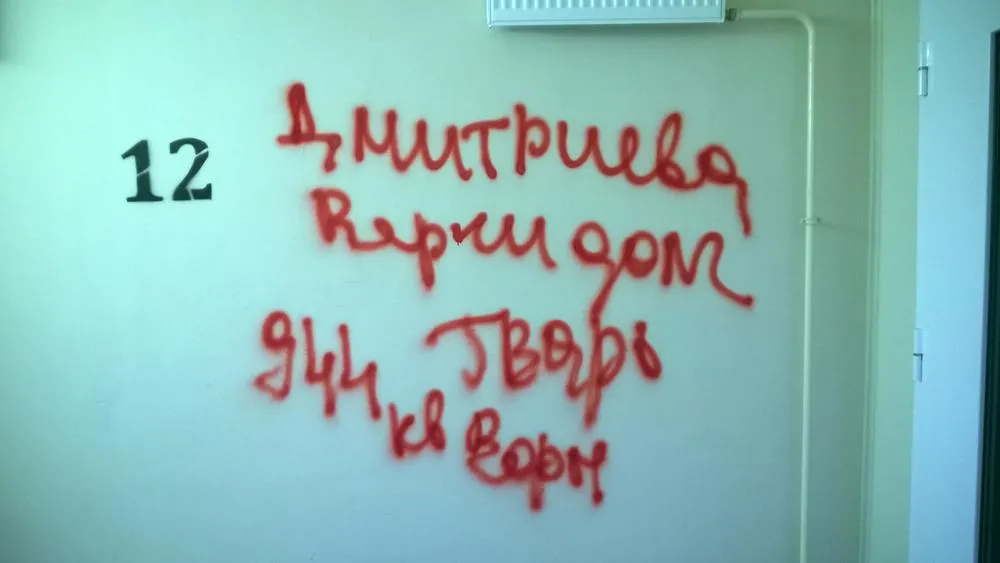 12
Дмитриева
Верни дом
944 Тварь
кв Верни